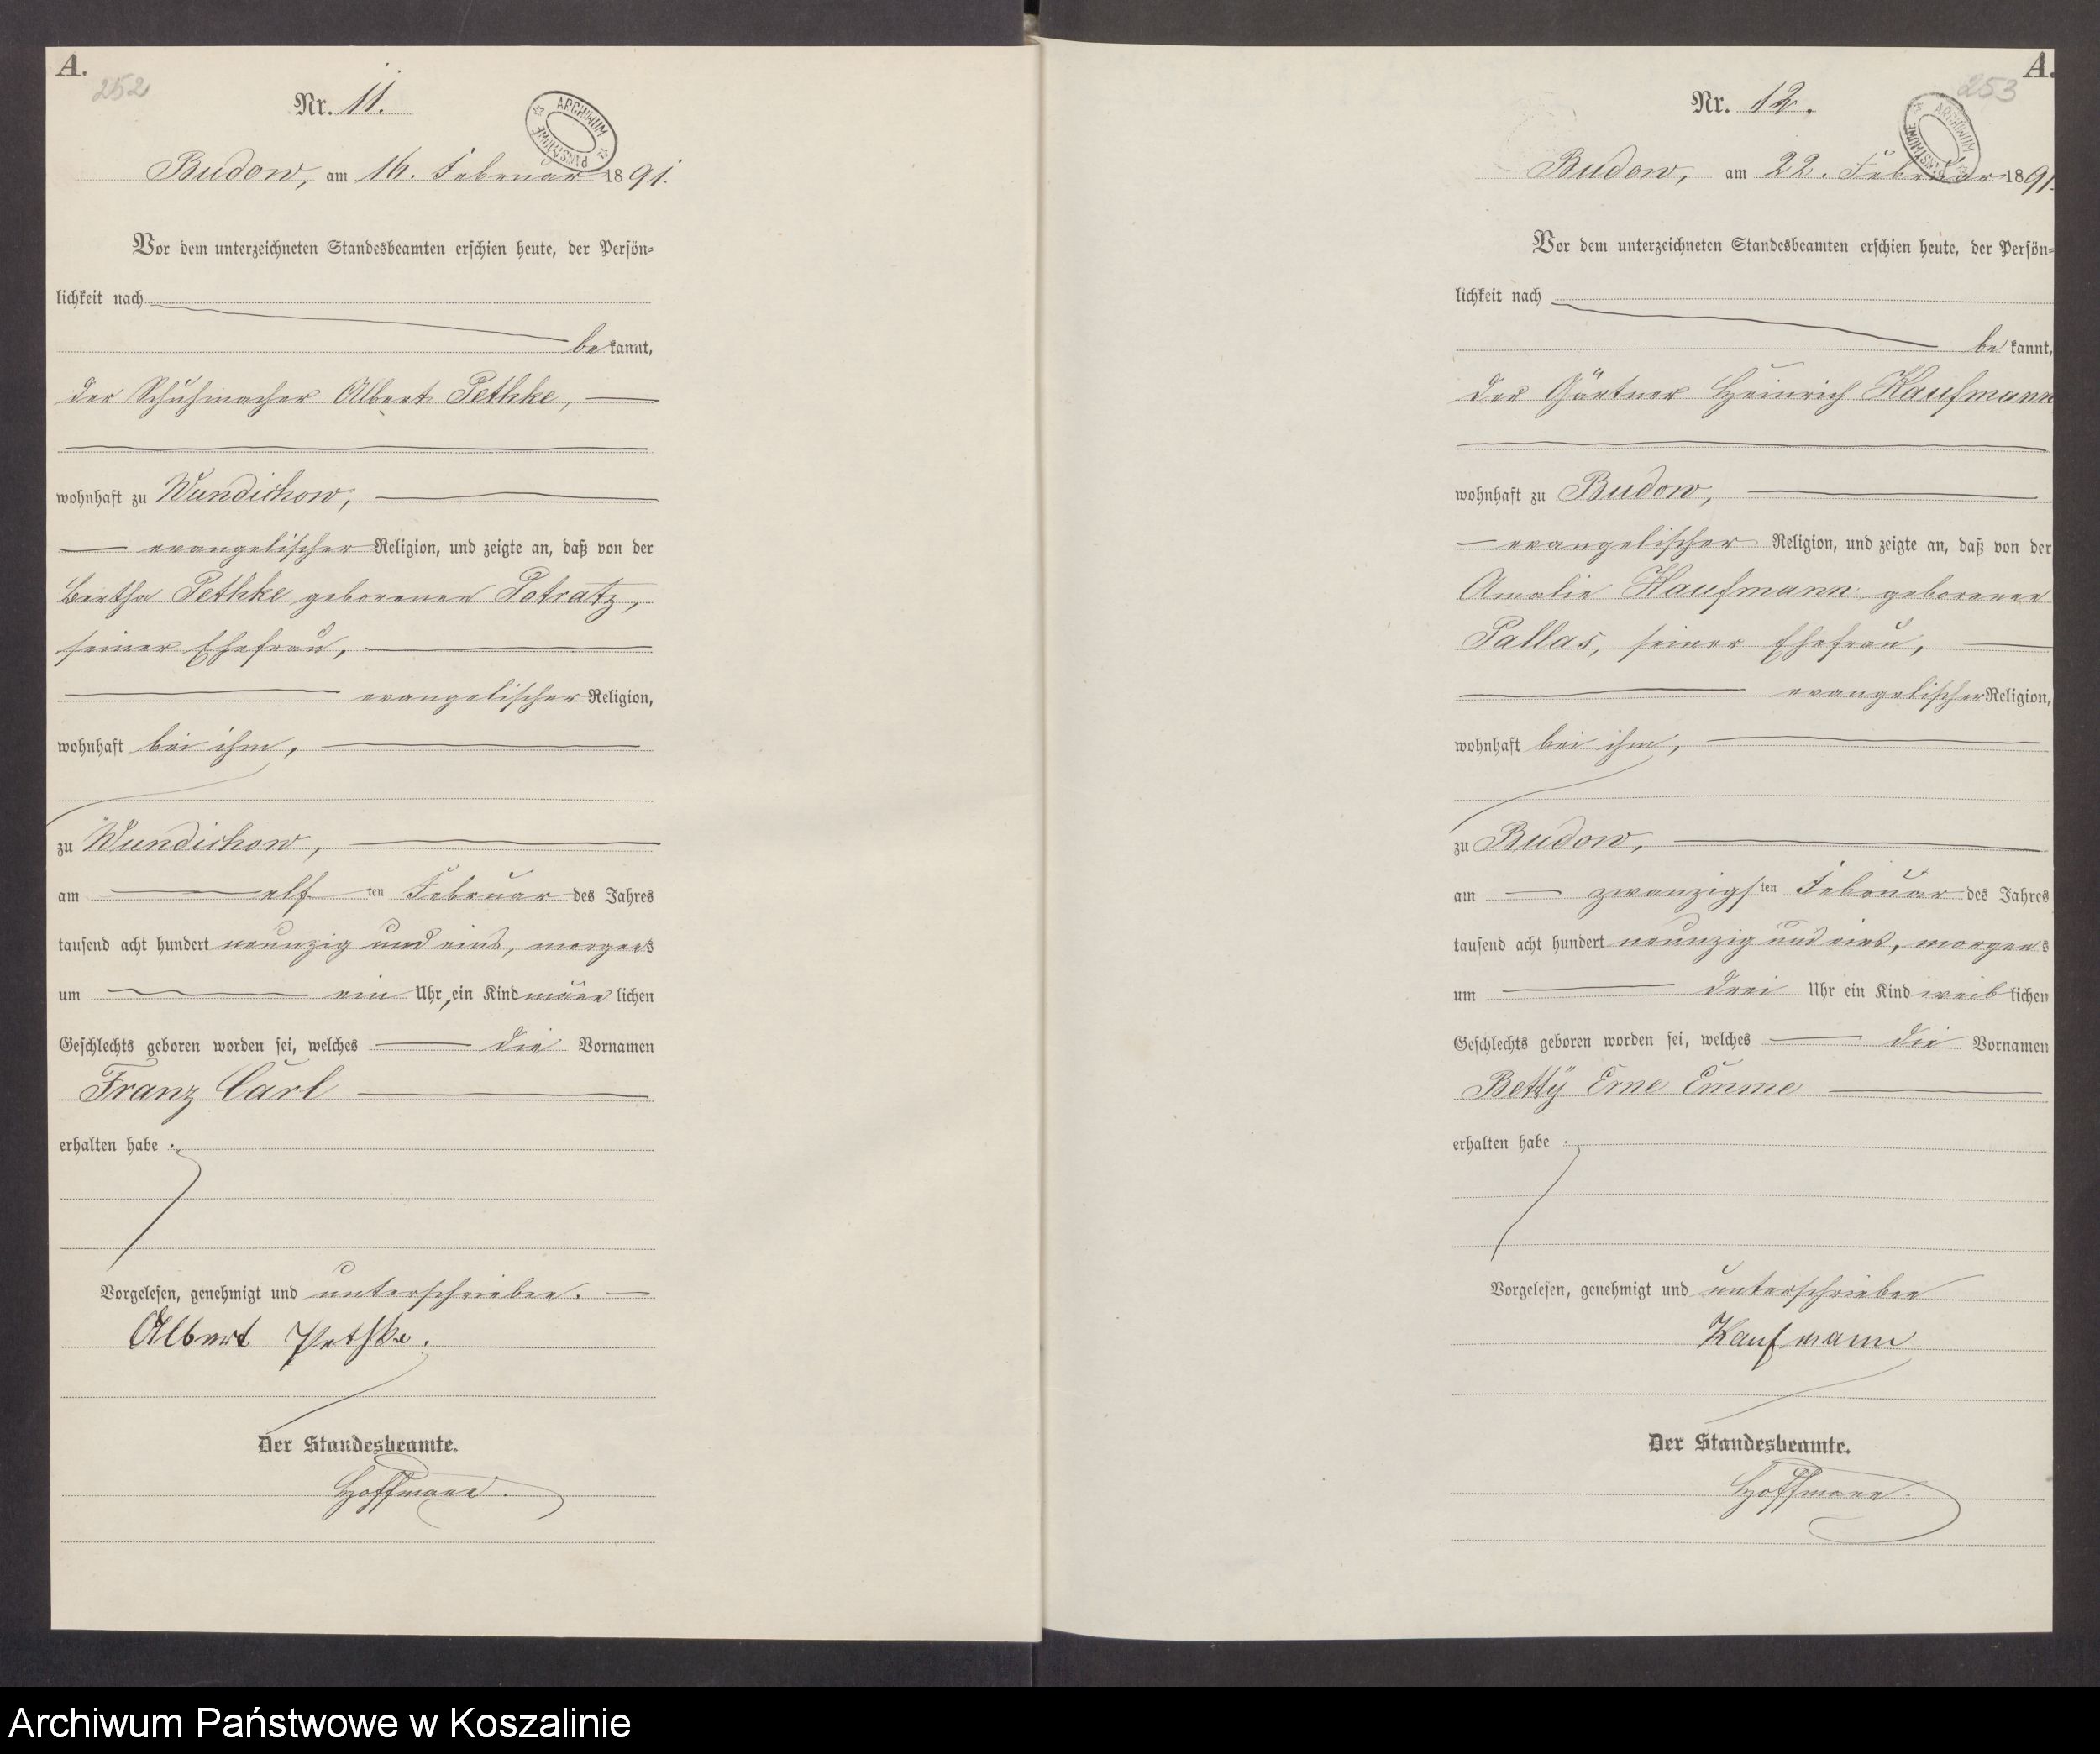 A.
252
Nr. 11.
ARCHIWUM PAŃSTWOWE
Budow, am 16. Februar 1891.
Vor dem unterzeichneten Standesbeamten erschien heute, der Persön-
lichkeit nach
bekannt,
der Schuhmacher Albert Pethke,
wohnhaft zu Wundichow,
evangelischer Religion, und zeigte an, daß von der
Bertha Pethke geborenen Potratz,
seiner Ehefrau,
evangelischer Religion,
wohnhaft bei ihm,
zu Wundichow,
am elften Februar des Jahres
tausend acht hundert neunzig und eins, morgens
um ein Uhr, ein Kind männlichen
Geschlechts geboren worden sei, welches die Vornamen
Franz Carl
erhalten habe.
Vorgelesen, genehmigt und unterschrieben.
Albert Pethke.
Der Standesbeamte.
Hoffmann.
A.
253
Nr. 12.
ARCHIWUM PAŃSTWOWE
Budow, am 22. Februar 1891.
Vor dem unterzeichneten Standesbeamten erschien heute, der Persön-
lichkeit nach
bekannt,
der Gärtner Heinrich Kaufmann
wohnhaft zu Budow,
evangelischer Religion, und zeigte an, daß von der
Amalie Kaufmann geborenen
Pallas, seiner Ehefrau,
evangelischer Religion,
wohnhaft bei ihm,
zu Budow,
am zwanzigsten Februar des Jahres
tausend acht hundert neunzig und eins, morgens
um drei Uhr ein Kind weiblichen
Geschlechts geboren worden sei, welches die Vornamen
Betty Erne Emme
erhalten habe.
Vorgelesen, genehmigt und unterschrieben
Kaufmann
Der Standesbeamte.
Hoffmann.
Archiwum Państwowe w Koszalinie